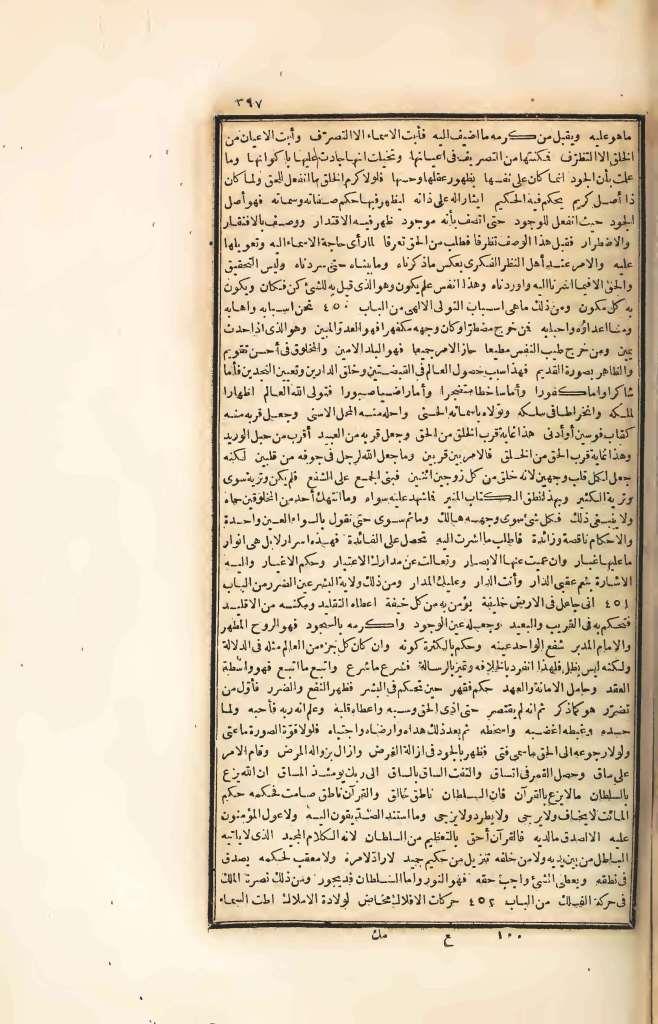 ٣٩٧
ما هو عليه ويقبل من كرمه ما اضيف اليه فأبت الاسماء الا التصرّف وأبت الاعيان من
الخلق الا التظرّف فكنتها من التصريف فى اعيانها وتخيلت انها جادت عليها با كوانها وما
علمت بأن الجود انما كان على نفسها بظهور عقلها وحسها فلولا كرم الخلق ما انفعل للحق ولما كان
ذا أصل كريم يحكم فيه الحكيم ايثارا له على ذاته ليظهر فيها حكم صفاته وسماته فهو أصل
الجود حيث انفعل للوجود حتى اتصف بأنه موجود ظهر فيه الاقتدار ووصف بالافتقار
والاضطرار فقبل هذا الوصف تظرفا فطلب من الحق تعرفا لما رأى حاجة الاسماء اليه وتعويلها
عليه والامر عند أهل النظر الفكرى بعكس ما ذكرناه وما بيناه حتى سردناه وليس التحقيق
والحق الا فيما اخبرنا اليه وأوردناه وهذا انفس علم يكون وهو الذى قيل به للشئ كن فكان ويكون
به كل مكون ومن ذلك ما هى اسباب التولى الالهى من الباب ٤٥٠ نحن اسبابه واهابه
ومنا اعداؤه واحبابه فمن خرج مضطرّا وكان وجهه مكفهرا فهو العدو المبين وهو الذى اذا حدث
يمين ومن خرج طيب النفس مطيعا حاز الامر جميعا فهو البلد الامين والمخلوق فى أحسن تقويم
والظاهر بصورة القديم فهذا سبب حصول العالم فى القبضتين وخلق الدارين وتعيين النجدين فأما
شاكرا واما كفورا وأما ساخطا متضجرا وأما راضيا صبورا فتولى الله العالم اظهارا
لملكه وانخراطا فى سلكه وتولاه باسمائه الحسنى واحله منه المحل الاسنى وجعل قربه منه
كقاب قوسين أو أدنى هذا غاية قرب الخلق من الحق وجعل قربه من العبيد أقرب من حبل الوريد
وهذا غاية قرب الحق من الخلق فالامر بين قربين وما جعل الله لرجل فى جوفه من قلبين لكنه
جعل لكل قلب وجهين لانه خلق من كل زوجين اثنين فبنى الجمع على الشفع فلم يكن وترية سوى
وترية الكثير وبهذا نطق الكتاب المنير فما شهد عليه سواه وما انتهك أحد من المخلوقين حماه
ولا ينبغى ذلك فكل شئ سوى وجهه هالك وما ثم سوى حتى نقول بالسواء العين واحدة
والاحكام ناقصة وزائدة فاطلب ما اشرت اليه تحصل على الفائدة فهذه اسرار لا بل هى انوار
ما عليها غبار وان عميت عنها الابصار وتعالت عن مدارك الاعتبار وحكم الاغيار واليه
الاشارة بنعم عقبى الدار وأنت الدار وعليك المدار ومن ذلك ولاية البشر عين الضرر من الباب
٤٥١ انى جاعل فى الارض خليفة يؤمن به من كل خيفة اعطاه التقليد ومكنه من الاقليد
فتحكم به فى القريب والبعيد وجعله عين الوجود واكرمه بالسجود فهو الروح المطهر
والامام المدبر شفع الواحد عينه وحكم بالكثرة كونه وان كان كل جزء من العالم مثله فى الدلالة
ولكنه ليس بظل فلهذا انفرد بالخلافه وتميز بالرسالة فشرع ما شرع واتبع ما اتبع فهو واسطة
العقد وحامل الامانة والعهد حكم فقهر حين تحكم فى البشر فظهر النفع والضرر فأول من
تضرّر هو كما ذكر ثم انه لم يقتصر حتى اذى الحق وسبه واعطاه قلبه وعلم انه ربه فأحبه ولما
حسده وغبطه اغضبه واسخطه ثم بعد ذلك هداه وارضاه واجتباه فلولا قوة الصورة ما عتى
ولولا رجوعه الى الحق ما سمى فتى فظهر بالجود فى ازالة الغرض وازال بزواله المرض وقام الامر
على ساق وحصل القمر فى اتساق والتفت الساق بالساق الى ربك يومئذ المساق ان الله يزع
بالسلطان ما لا يزع بالقرآن فان السلطان ناطق خالق والقرآن ناطق صامت فحكمه حكم
المائت لا يخاف ولا يرجى ولا يطرد ولا يزجى وما استند الصديقون اليه ولا عول المؤمنون
عليه الا لصدق ما لديه فالقرآن أحق بالتعظيم من السلطان لانه الكلام المجيد الذى لا يأتيه
الباطل من بين يديه ولا من خلفه تنزيل من حكيم حميد لا رادّ لامره ولا معقب لحكمه يصدق
فى نطقه ويعطى الشئ واجب حقه فهو النور واما السلطان قد يجور ومن ذلك نصرة الملك
فى حركة الفلك من الباب ٤٥٢ حركات الافلاك مخاض لولادة الاملاك اطت السماء
١٠٠ ع مك